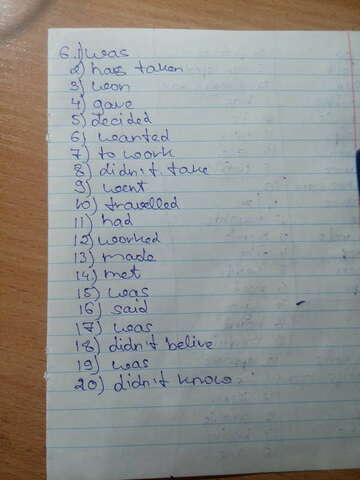 6. 1) was
2) has taken
3) won
4) gave
5) decided
6) wanted
7) to work
8) didn't take
9) went
10) travelled
11) had
12) worked
13) made
14) met
15) was
16) said
17) was
18) didn't belive
19) was
20) didn't know